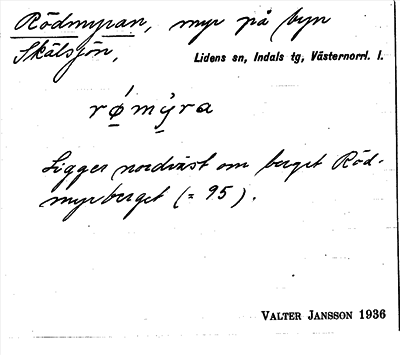 Rödmyran, myr på byn
Skälsjön,
Lidens sn, Indals tg, Västernorrl. l.
rǿ̱mỵ̀ra
Ligger nordväst om berget Röd-
myrberget (= 95).
VALTER JANSSON 1936